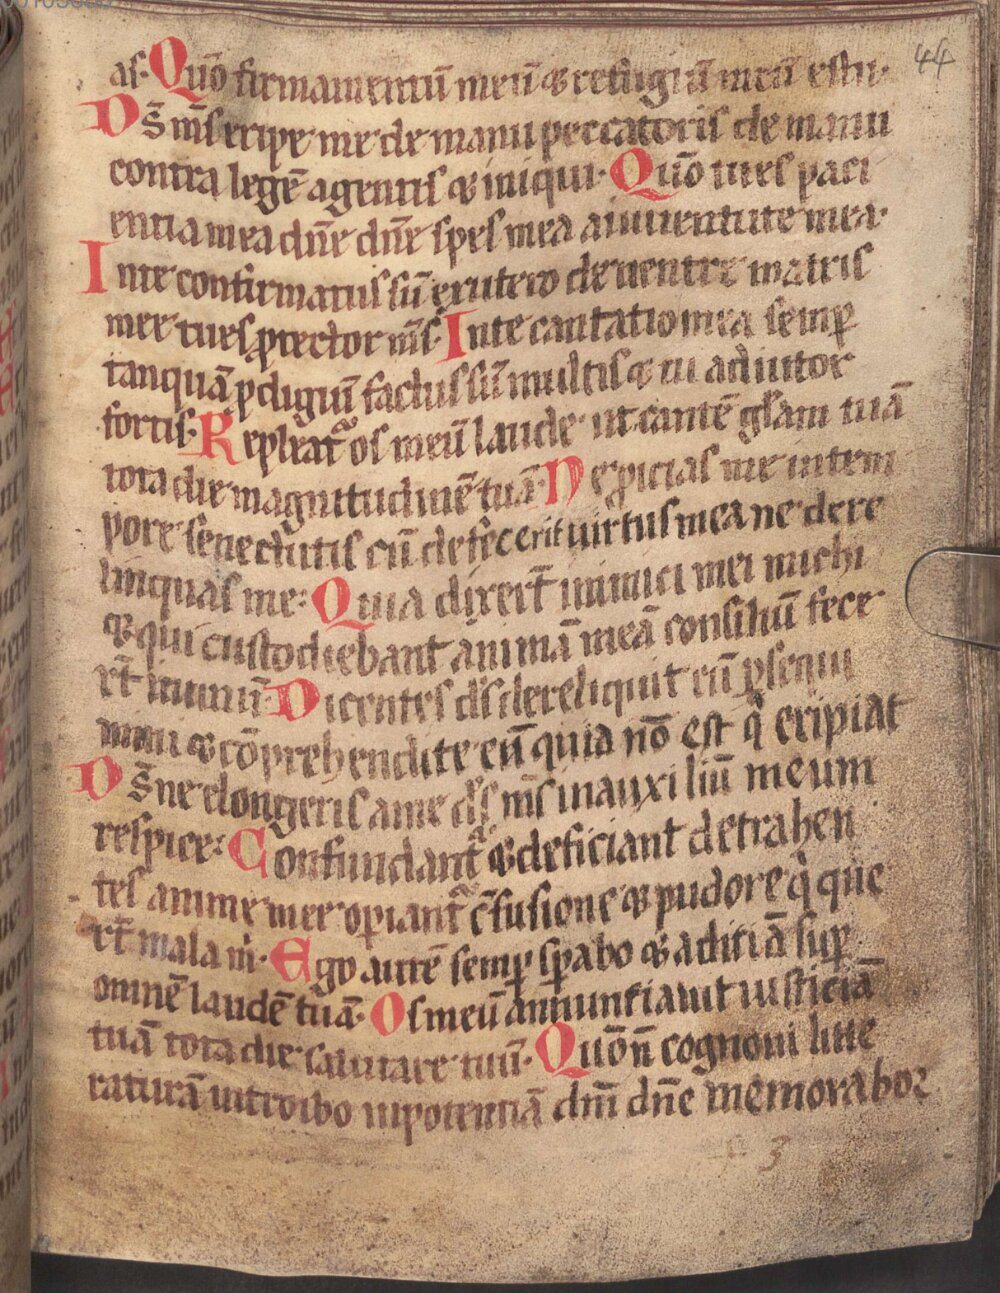 44
as. Quō firmamentū meū ⁊ refugiū meū es tu.
Ds̄ ms̄ eripe me de manu peccatoris de manu
contra legē agentis ⁊ iniqui. Quō tu es paci
entia mea dn̄e dn̄e spes mea a iuuentute mea.
In te confirmatus sū ex utero de uentre matris
mee tu es ꝓtector ms̄. In te cantatio mea semꝑ
tanquā ꝓdigiū factus sū multis ⁊ tu adiutor
fortis. Repleatᷣ os meū laude ut cantē gl̄am tuā
tota die magnitudinē tuā. Ne ꝓicias me in tem
pore senectutis cū defecerit uirtus mea ne dere
linquas me: Quia dixert̄ inimici mei michi
⁊ qui custodiebant animā meā consiliū fece
rt̄ in unū. Dicentes ds̄ dereliquit eū ꝑsequi
mini ⁊ cōprehendite eū quia nō est qͥ eripiat
Ds̄ ne elongeris a me ds̄ ms̄ in auxiliū meum
respice: Confundantᷣ ⁊ deficiant detrahen
tes anime mee opiantᷣ c̄fusione ⁊ pudore qͥ que
rt̄ mala m̄. Ego autē semꝑ sꝑabo ⁊ adiciā suꝑ
omnē laudē tuā. Os meū annuntiauit iusticiā
tuā tota die salutare tuū. Quōn̄ cognoui litte
raturā introibo in potentiā dn̄i dn̄e memorabor
3